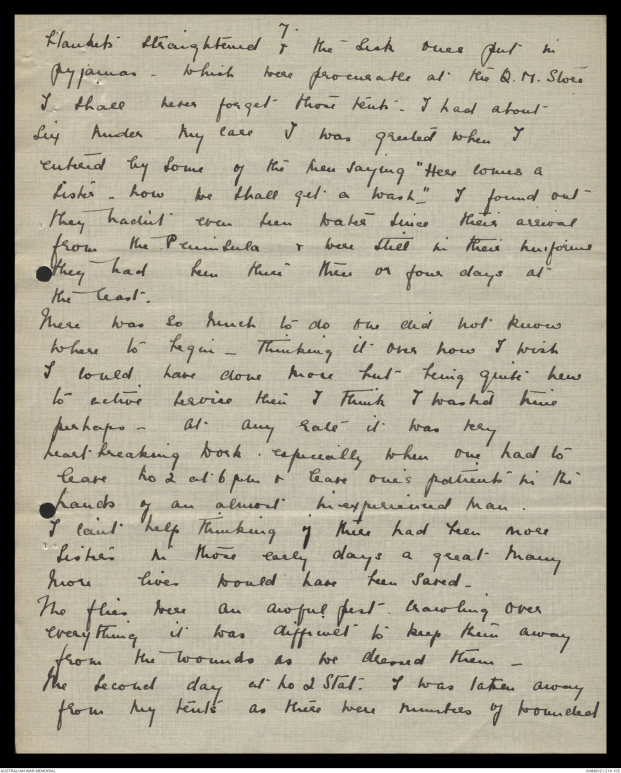 7.
blankets straightened & the sick ones put in
pyjamas - which were procurable at the Q.M. Store
I shall never forget those tents - I had about
six under my care I was greeted when I
entered by some of the men saying "Here comes a
Sister - now we shall get a wash" - I found out
they hadn't even seen water since their arrival
from the Peninsula & were still in their uniforms
they had been there three or four days at
the least.
There was so much to do one did not know
where to begin - Thinking it over now I wish
I could have done more but being quite new
to active service then I think I wasted time
perhaps - at any rate it was very
heart-breaking work. especially when one had to
leave No 2 at 6 pm & leave one's patients in the
hands of an almost inexperienced man.
I can't help thinking if there had been more
Sisters in those early days a great many
more lives would have been saved -
The flies were an awful pest. crawling over
everything it was difficult to keep them away
from the wounds as we dressed them -
The second day at No 2 Stat. I was taken away
from my tents as there were numbers of wounded
AUSTRALIAN WAR MEMORIAL